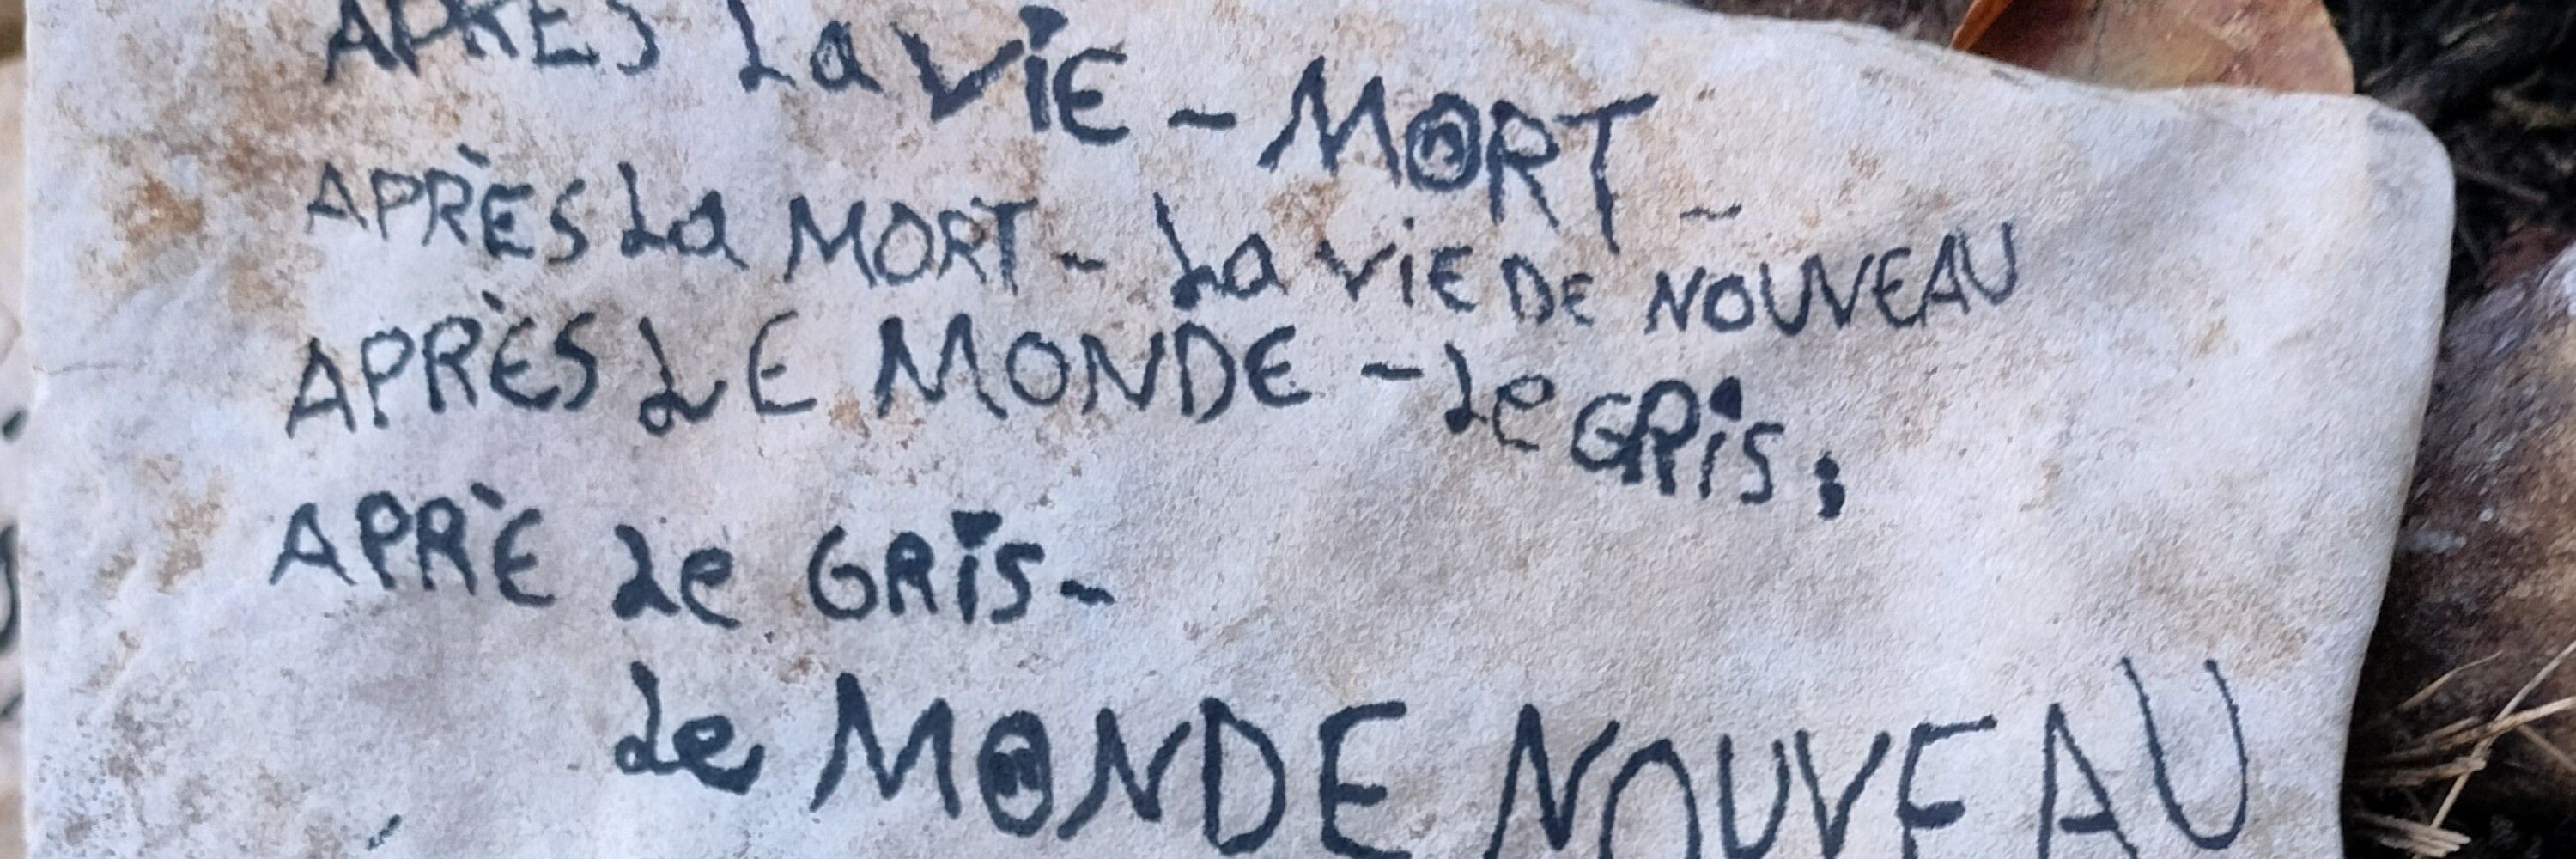 APRES La ViE - MORT -
APRÈS La MORT - La ViE DE NOUVEAU
APRÈS LE MONDE - Le GRiS;
APRÈ Le GRiS -
Le MONDE NOUVEAU